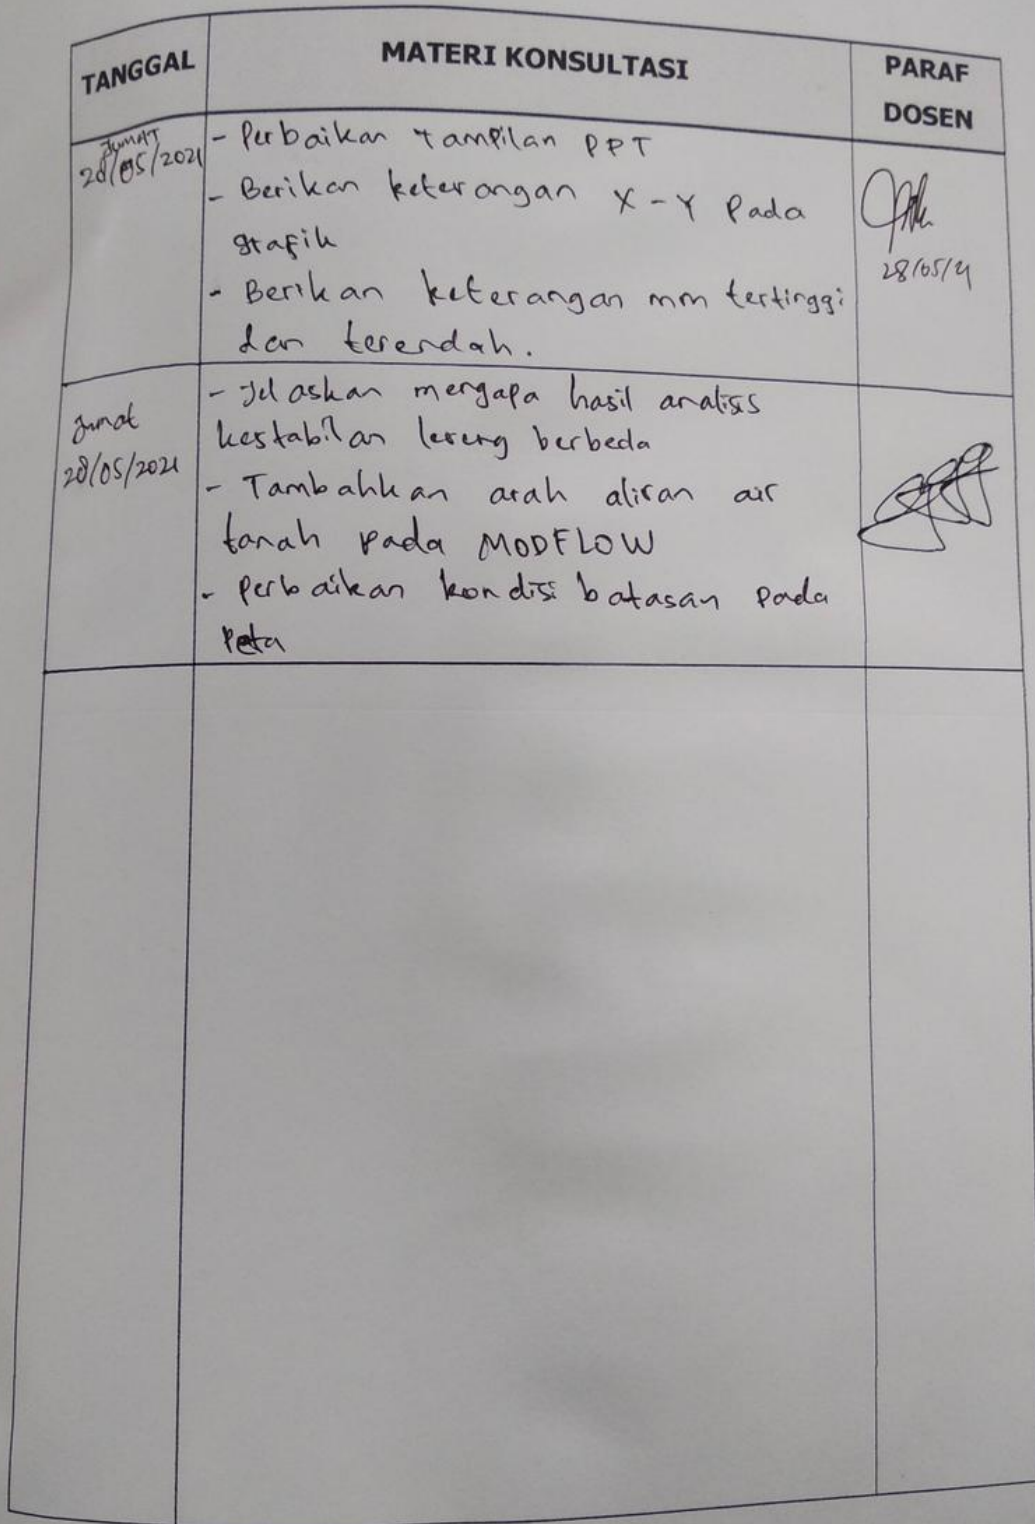 TANGGAL
MATERI KONSULTASI
PARAF
DOSEN
JUMAT
28/05/2021
- Perbaikan tampilan PPT
- Berikan keterangan X-Y Pada
grafik
- Berikan keterangan mm tertinggi
dan terendah.
28/05/21
Jumat
28/05/2021
- Jelaskan mengapa hasil analisis
kestabilan lereng berbeda
- Tambahkan arah aliran air
tanah pada MODFLOW
- Perbaikan kondisi batasan pada
Peta